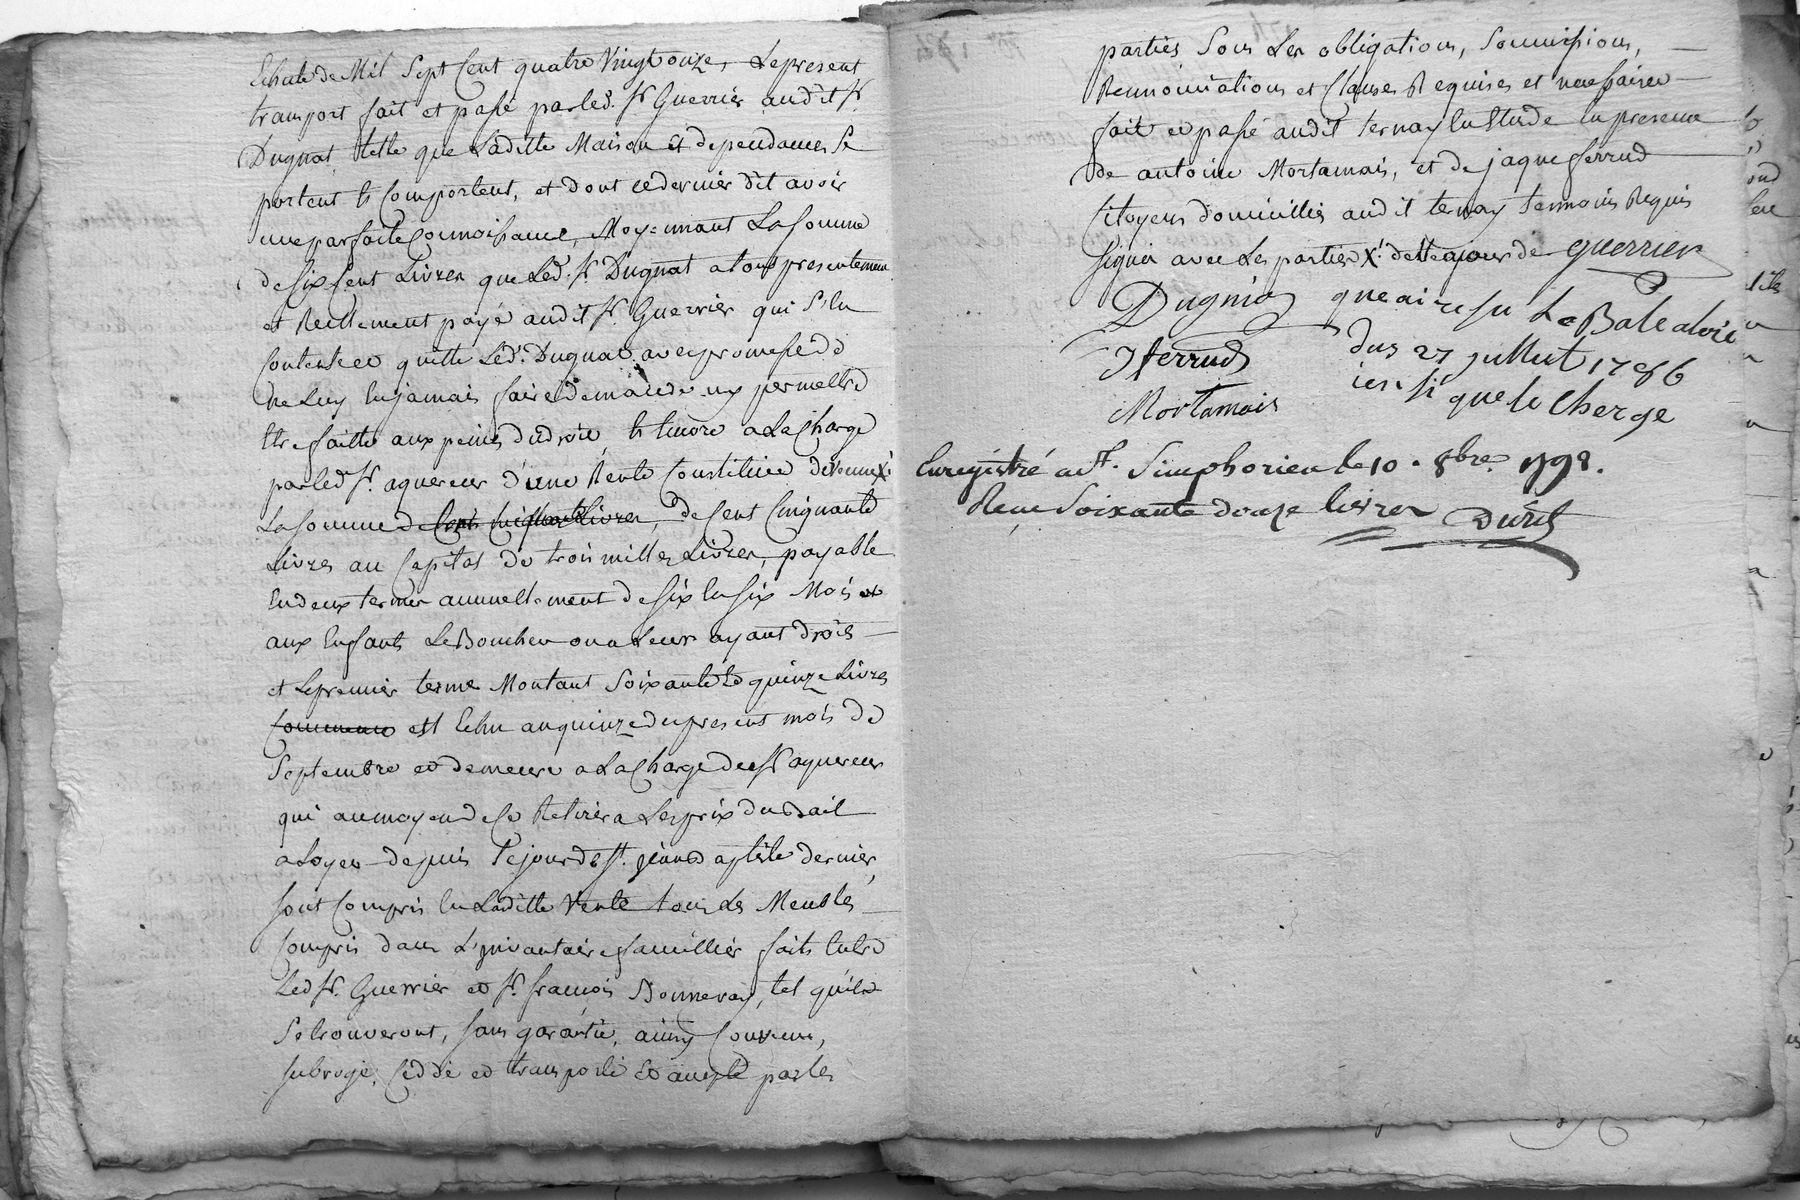 Echute de Mil Sept Cent quatre Vingt onze, Le present
transport fait et passé par led. Sr. Guerrier audit Sr.
Dugnat telle que Laditte Maison et dependances Se
portent et Comportent, et dont ce dernier dit avoir
une parfaite Connoissance, Moyennant La somme
de six Cent Livres que Led. Sr. Dugnat a tout presentement
et Reellement payé audit Sr. Guerrier qui S'en
Contente et quitte Led. Dugnat avec promesse de
ne Luy En jamais faire demande ny permettre
Etre faitte aux peines de droit, et Encore a La Charge
par led Sr. aquereur d'une Rente Constituée
La somme de Cent Cinquante Livres, de Cent Cinquante
Livres au Capital de trois milles Livres, payable
En deux termes annuellement de six En six Mois et
aux Enfants Le Boucher ou a Leur ayant droit
et Le premier terme Montant Soixante et quinze Livres
Commence est Echu au quinze du present mois de
Septembre et demeure a La Charge du Sr aquereur
qui au moyen de ce Retirera Les prix du Bail
a Loyer depuis Le jour de St. jean dernier,
sont Compris En Laditte Vente tous Les Meubles
Compris dans L'invantaire famillier faits Entre
Led Sr. Guerrier et Sr. françois Bonneray, tel qu'ils
Se trouveront, sans garantie, ainsy Convenu,
subrogé, Ceddé et transporté et accepté par les
parties Sous Les obligations, Soumissions,
Rennonciations et Clauses Requises et necessaires
fait et passé audit ternay En Etude En presence
de antoine Mortamais, et de jaque ferrud
Citoyens domicilliés audit ternay temoins Requis
signés avec Les parties guerrier
Dugnia que ai resu La
dus 27 jullet 1786
J ferrud
ien si que le Cherge
Mortamais
Enregistré a St. Simphorien le 10. 8bre. 1791.
Reçu Soixante douze livres